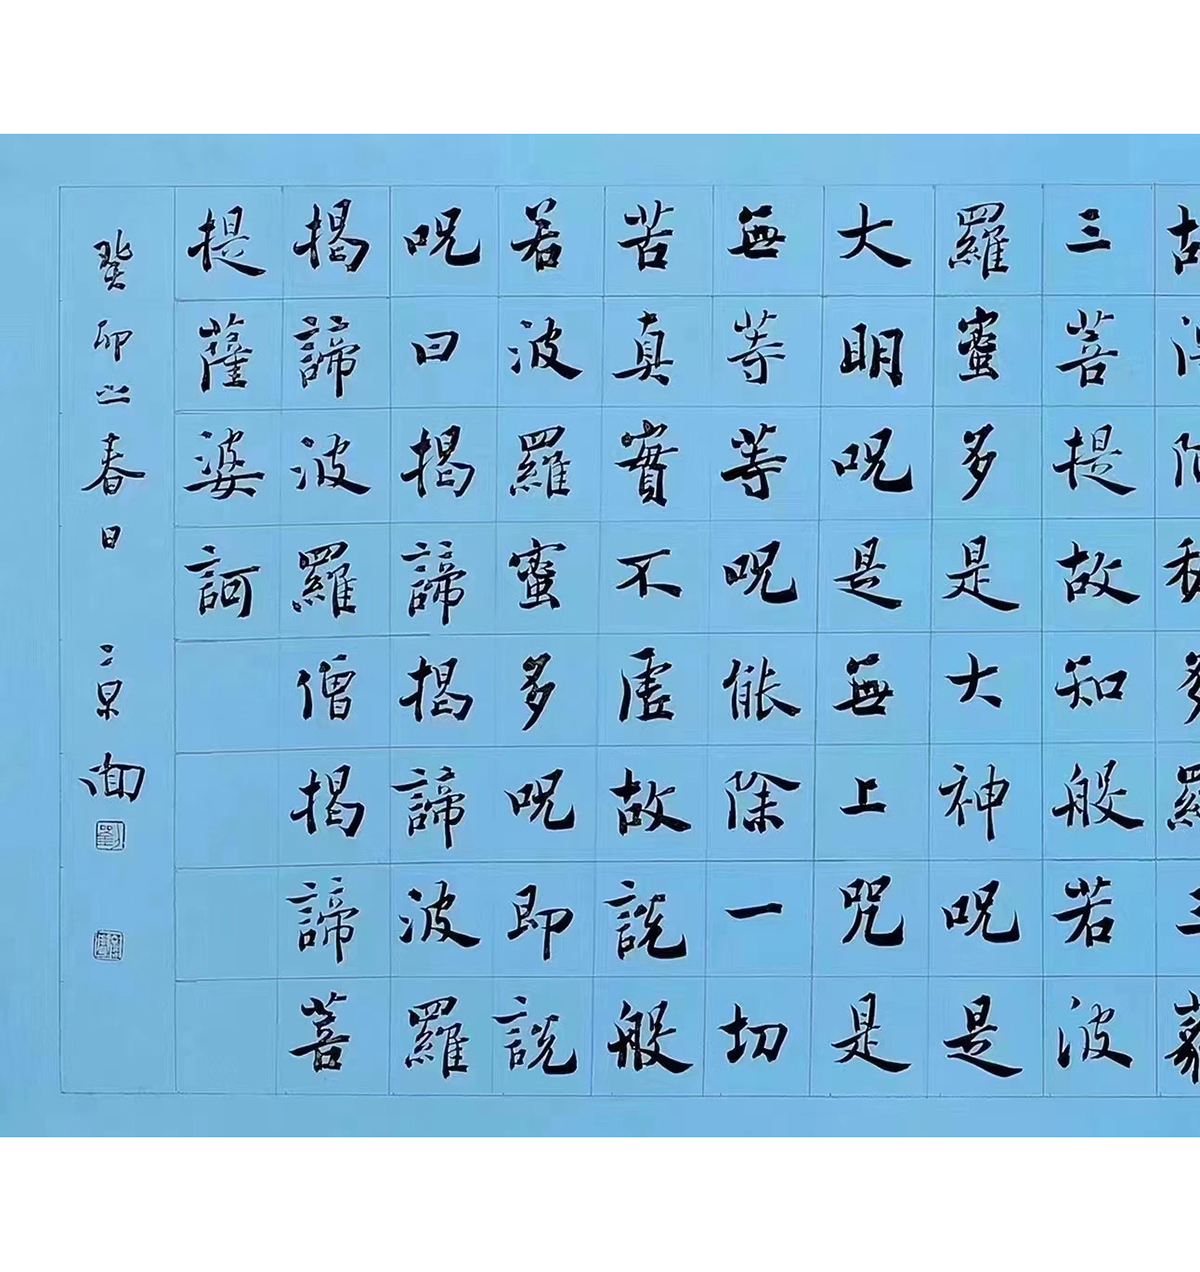 三菩提故知般若波
羅蜜多是大神呪是
大明呪是無上咒是
無等等呪能除一切
苦真實不虛故說般
若波羅蜜多呪即說
呪曰揭諦揭諦波羅
揭諦波羅僧揭諦菩
提薩婆訶
癸卯之春日